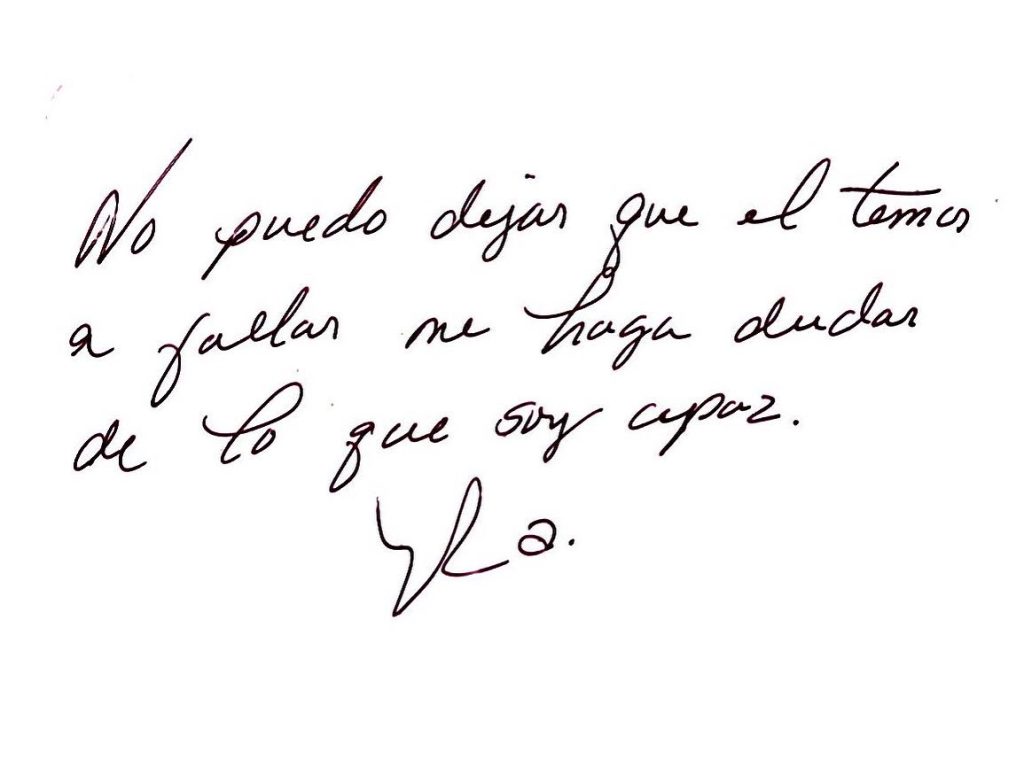 No puedo dejar que el temor
a fallar me haga dudar
de lo que soy capaz.